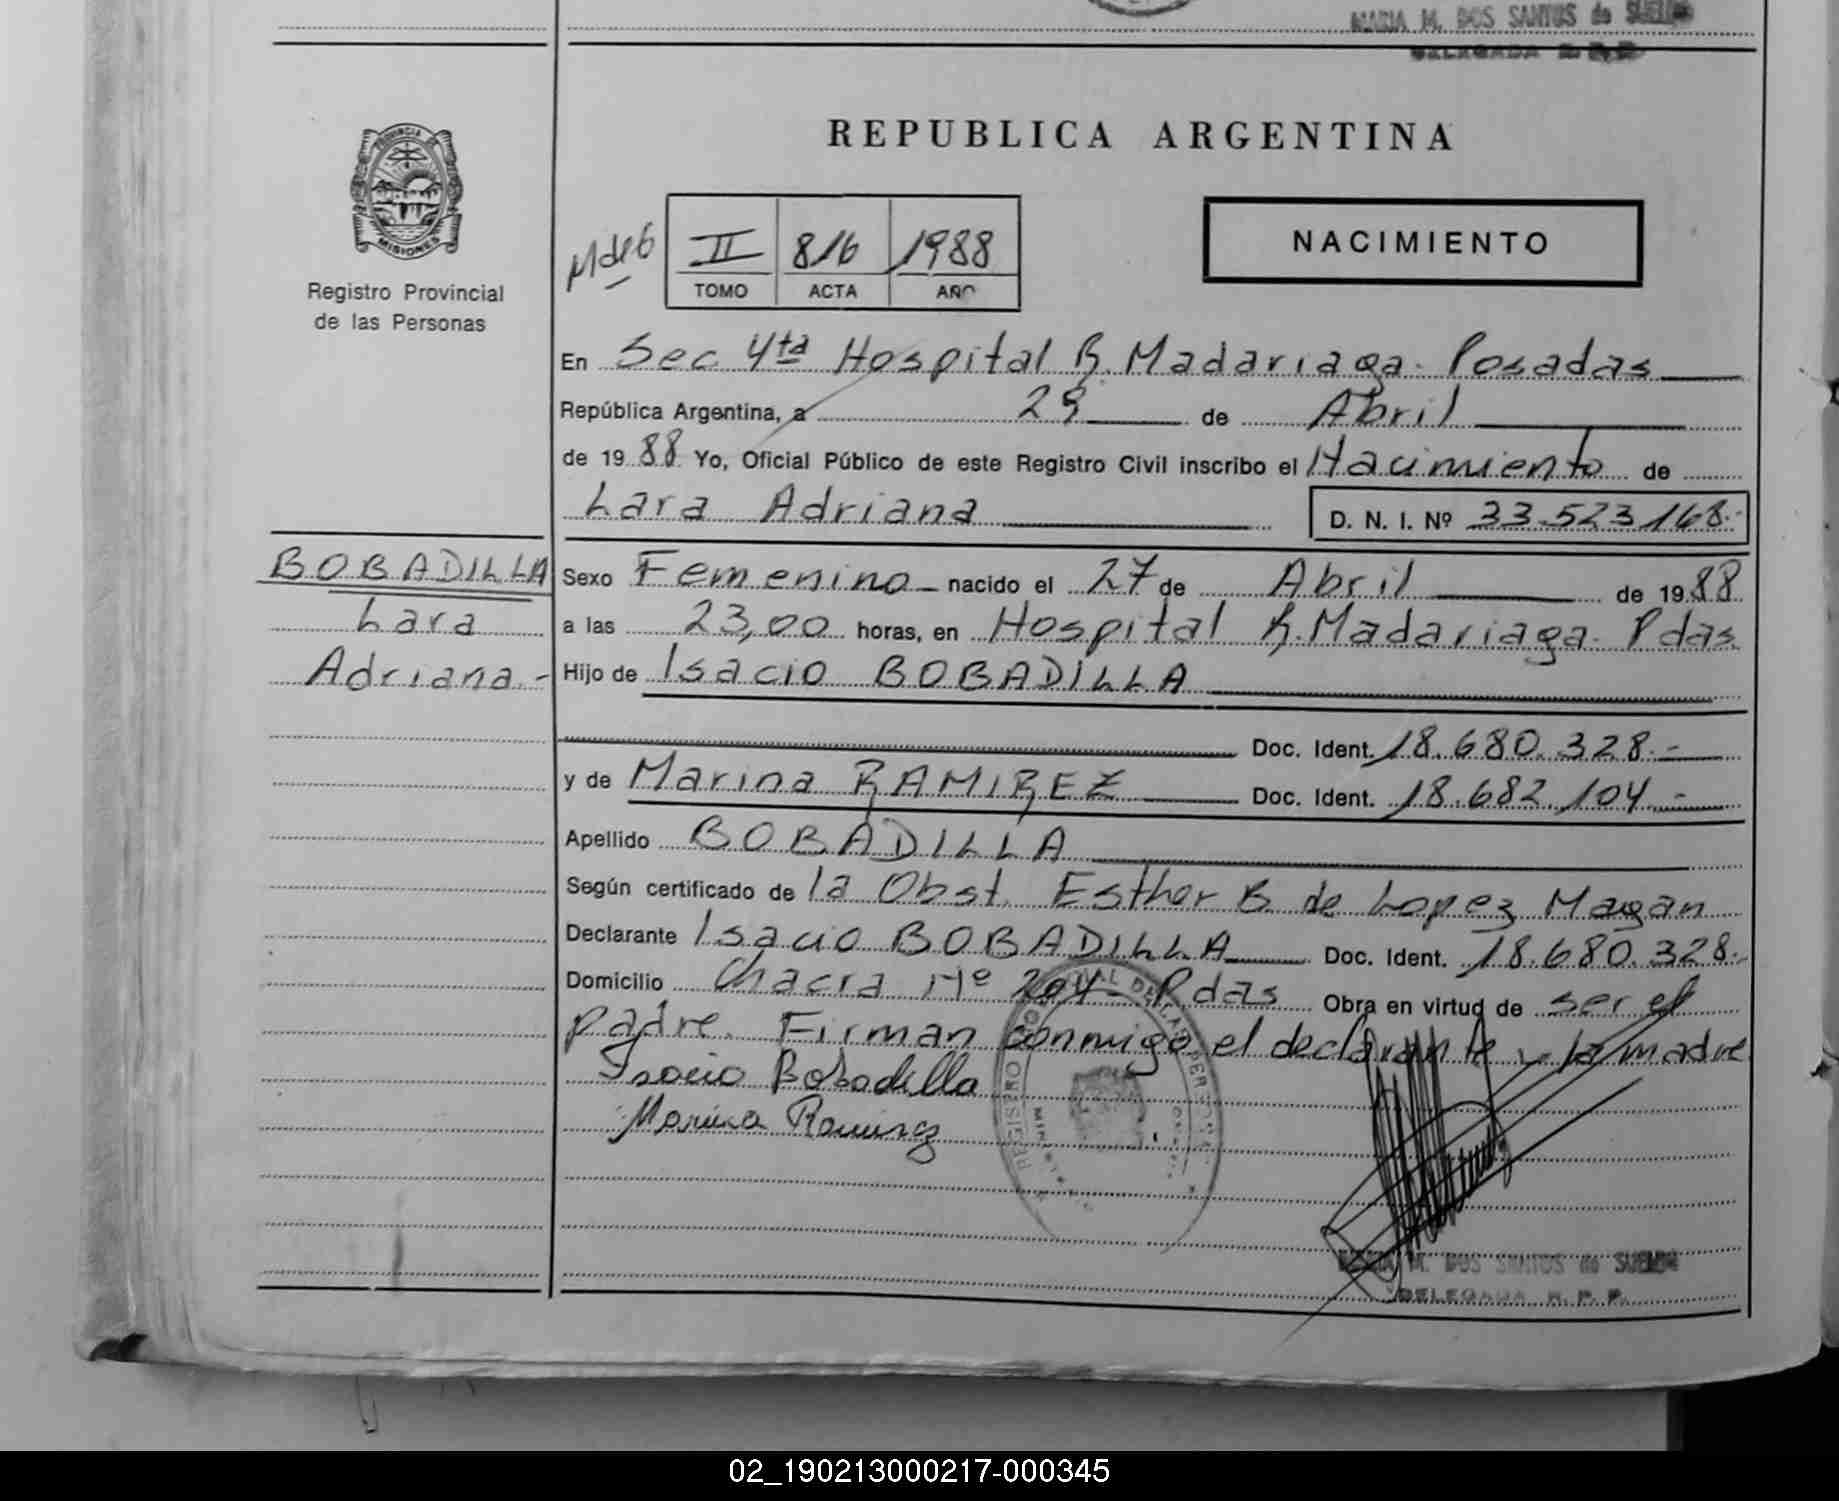 MARIA M. DOS SANTOS de SUELDO
DELEGADA R.P.P.
PROVINCIA DE
MISIONES
Registro Provincial
de las Personas
REPUBLICA ARGENTINA
II 816 1988
TOMO ACTA AÑO
NACIMIENTO
En Sec 4ta Hospital R. Madariaga - Posadas
República Argentina, a 29 de Abril
de 1988 Yo, Oficial Público de este Registro Civil inscribo el Nacimiento de
Lara Adriana D. N. I. Nº 33.523.168.-
BOBADILLA
Lara
Adriana.-
Sexo Femenino nacido el 27 de Abril de 1988
a las 23,00 horas, en Hospital R. Madariaga - Pdas.
Hijo de Isacio BOBADILLA
Doc. Ident. 18.680.328.-
y de Marina RAMIREZ Doc. Ident. 18.682.104.-
Apellido BOBADILLA
Según certificado de la Obst. Esther B. de Lopez Magan
Declarante Isacio BOBADILLA Doc. Ident. 18.680.328.-
Domicilio Chacra Nº 204 - Pdas Obra en virtud de ser el
padre. Firman conmigo el declarante y la madre
Isacio Bobadilla
Marina Ramirez
MARIA M. DOS SANTOS de SUELDO
DELEGADA R. P. P.
02_190213000217-000345